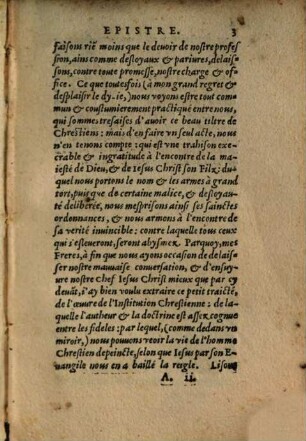 EPISTRE. 3
faisons riẽ moins que le deuoir de nostre profes
sion, ains comme desloyaux & pariures, delais-
sons, contre toute promesse, nostre charge & of-
fice. Ce que toutesfois (à mon grand regret &
desplaisir le dy-ie,) nous voyons estre tout com
mun & coustumierement practiqué entre nous,
qui sommes tresaises d'auoir ce beau tiltre de
Chrestiens: mais d'en faire vn seul acte, nous
n'en tenons compte: qui est vne trahison exe-
crable & ingratitude à l'encontre de la ma-
iesté de Dieu, & de Iesus Christ son Filz: du-
quel nous portons le nom & les armes à grand
tort, puis que de certaine malice, & desloyau-
té deliberée, nous mesprisons ainsi ses sainctes
ordonnances, & nous armons à l'encontre de
sa verité inuincible: contre laquelle tous ceux
qui s'esleueront, seront abysmez. Parquoy, mes
Freres, à fin que nous ayons occasion de delais-
ser nostre mauuaise conuersation, & d'ensuy-
ure nostre Chef Iesus Christ mieux que par cy
deuãt, i'ay bien voulu extraire ce petit traicté,
de l'œuure de l'Institution Chrestienne: de la-
quelle l'autheur & la doctrine est assez cognue
entre les fideles: par lequel, (comme dedans vn
miroir,) nous pouuons veoir la vie de l'homme
Chrestien depeincte, selon que Iesus par son E-
uangile nous en a baillé la reigle. Lisons
A. ii.